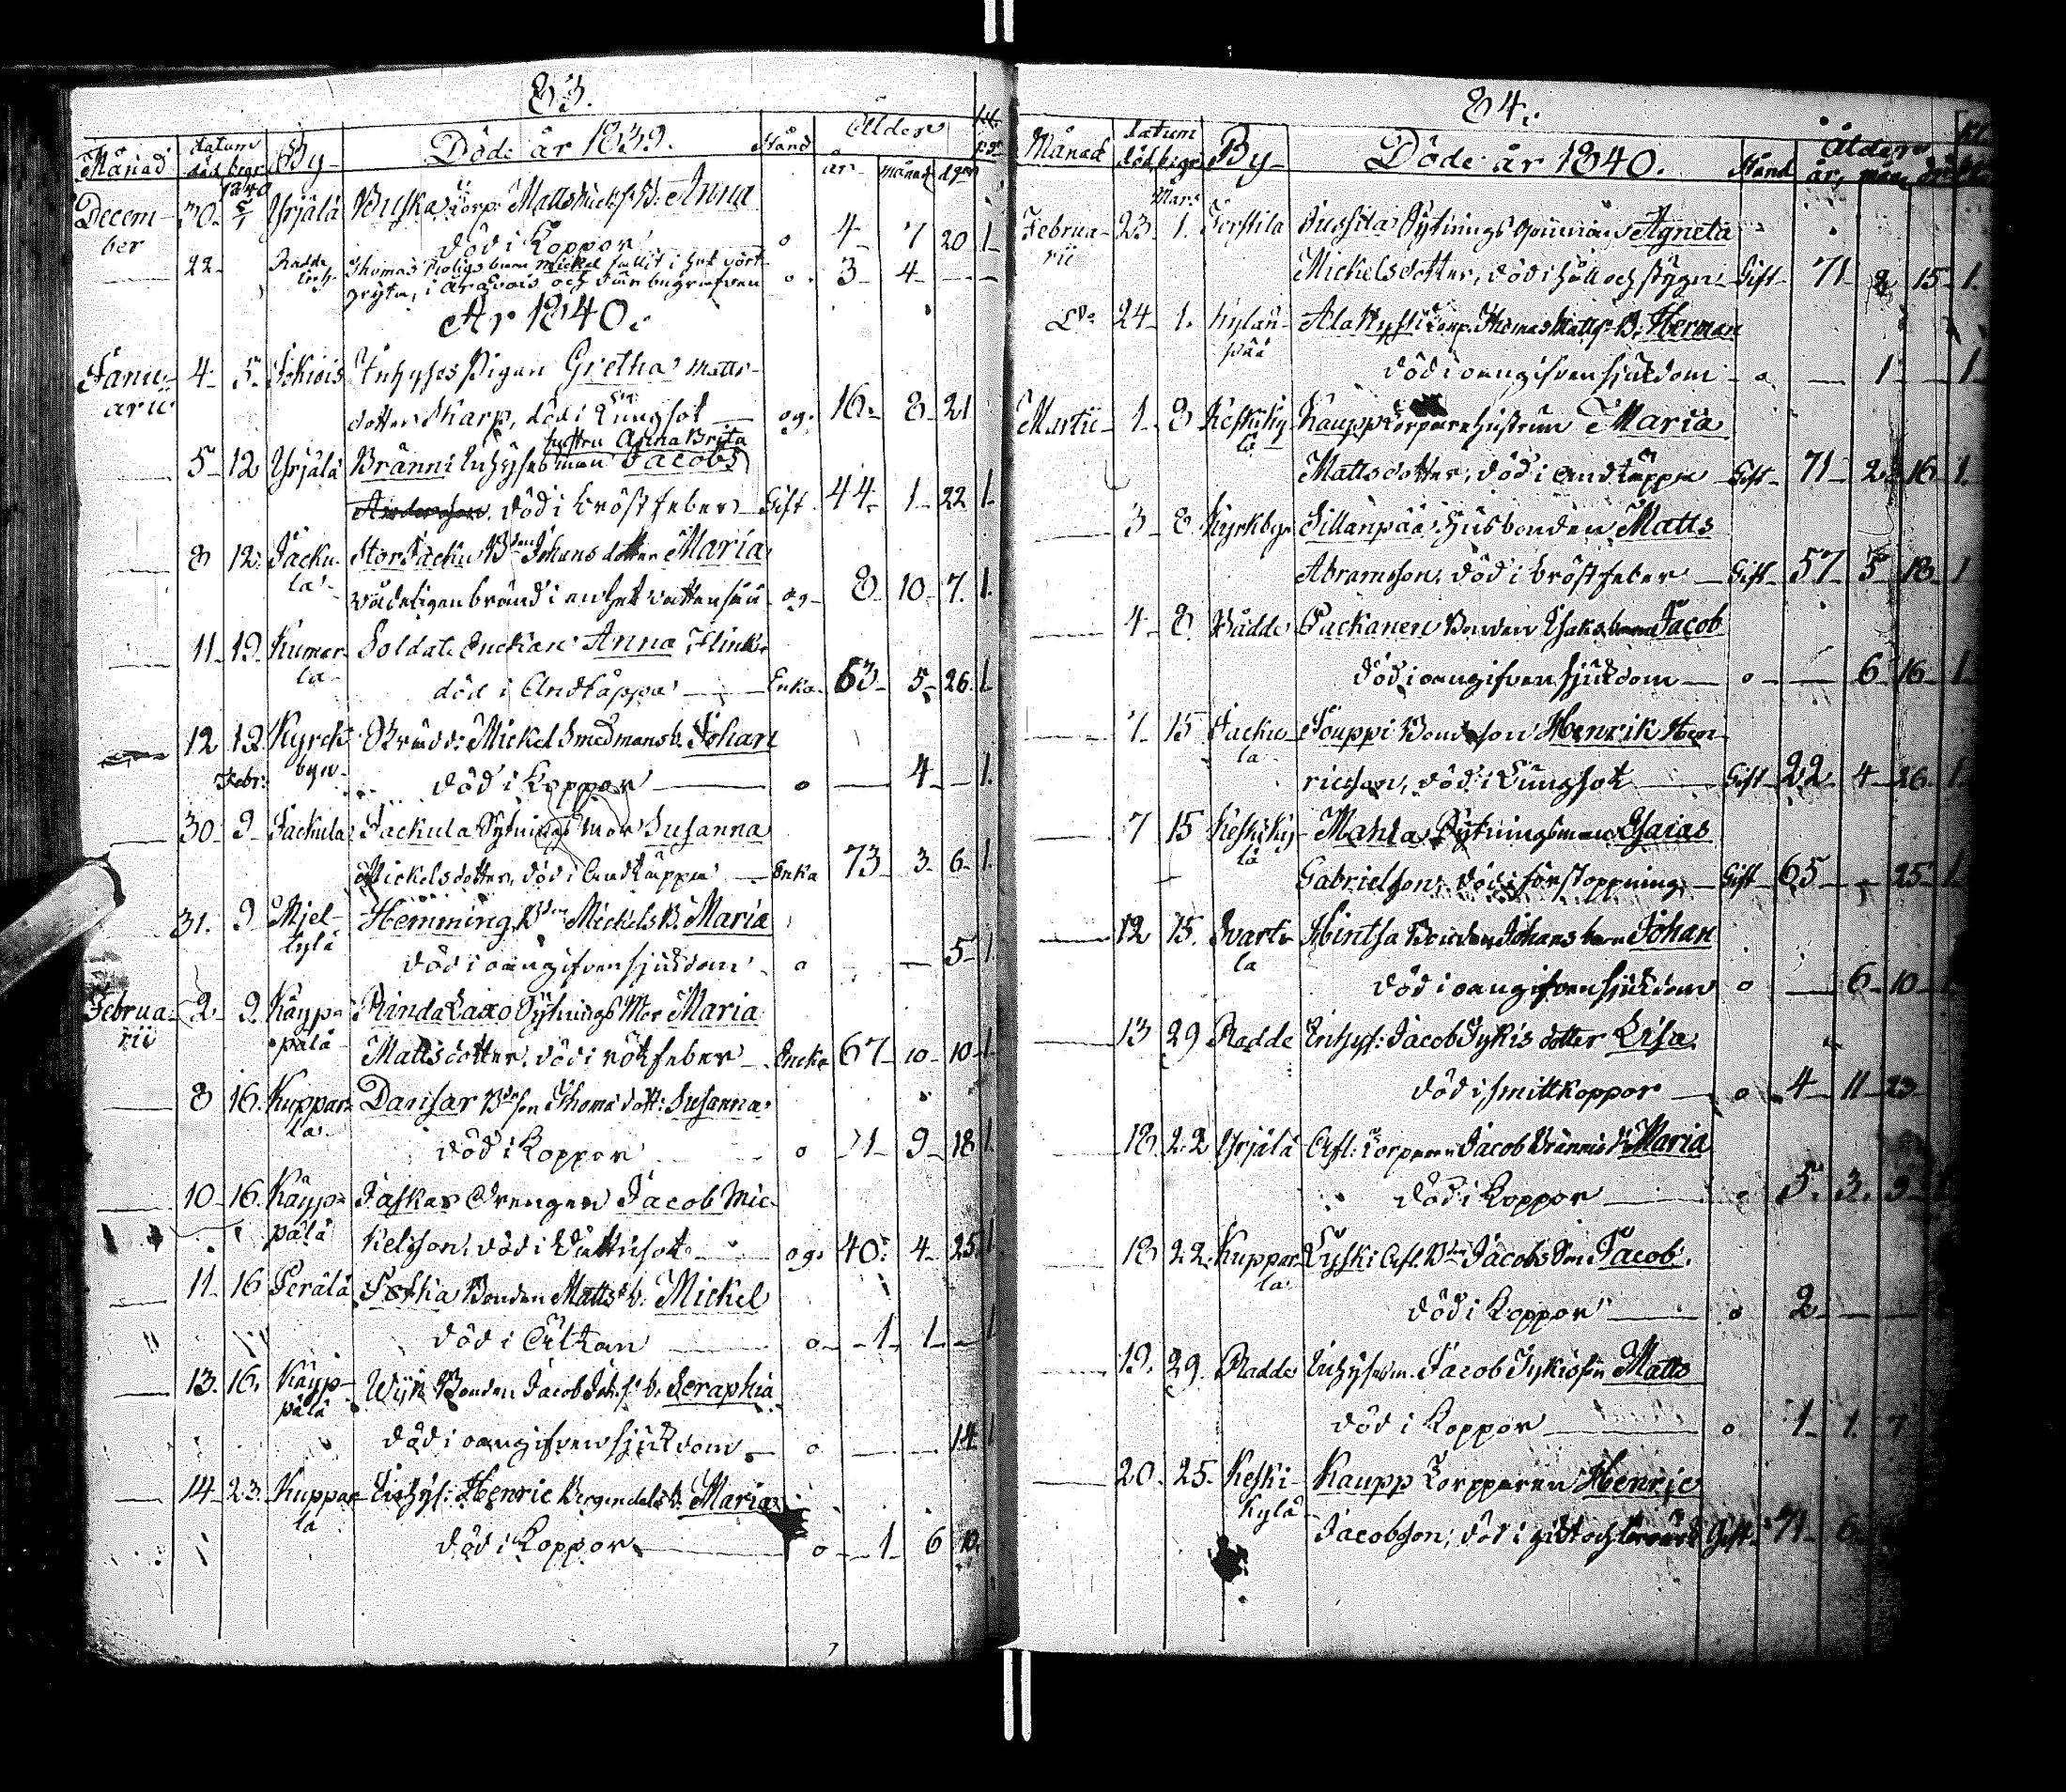 83.
Månad datum död begr By Döde år 1839. Stånd Ålder år månad dgr
1840
Decem- 30. 5/1 Yrjälä Buska Torp: Matts B: Anna
ber död i Koppor o 4 7 20 1
22 Radde Thomas barn Mickel fallit i het vört
gryta, i och där begrafven o. 3 4
År 1840.
Janu- 4 5 Jokiois Inhyses Pigan Gretha Matts-
arii dotter Skarp, död i Lungsot og. 16 8 21
hustru Anna Brita
5 12 Yrjälä Bränni Inhysesman Jacobs
Andersson död i bröstfeber Gift 44 1 22 1
8 12 Jacku- StorJacku Bden Johans dotter Maria
la vådeligen bränd i en het vatten og 8 10 7 1
11 19 Kumar- Soldats Enckan Anna Flink
la död i Andtäppa Enka 63 5 26 1
12 19 Kyrck- Mickel Smedmans b. Johan
Febr: byn död i Koppor o 4 1
30 9 Jackula Jackula Sytnings Mor Susanna
Mickelsdotter, död i Andtäppa Enka 73 3 6 1
31. 9 Mjel- Hemming Bden Mickels B. Maria
kylä död i oangifven sjukdom o 5 1
Februa- 2 9 Käyp- RindaLaxo Sytnings Mor Maria
rii pälä Mattsdotter, död i rötfeber Encka 67 10 10 1
8 16 Kuppar- Dansar Thoma dott: Susanna
la död i Koppor o 1 9 18 1
10 16 Käyp- Jaskar Drengen Jacob Mic-
pälä kelsson, död i og. 40 4 25 1
11 16 Perälä Potka Bonden Matts b. Mickel
död i o 1 1 1
13. 16. Käyp- Wijk Bonden Jacob b. Seraphia
pälä död i oangifven sjukdom o 14 1
14 23 Kuppar- Inhys: Henric Bergendals b. Maria
la död i Koppor o 1 6 10
84.
Månad datum död begr By Döde år 1840. Stånd Ålder år
Mars
Februa- 23 1. Torstila Jussila Sytnings Agneta
rii Mickelsdotter, död i håll och stygn Gift 71 2 15 1.
Do 24 1. Kylän- Alakyssi Torp. Thomas Matts B. Herman
pää död i oangifven sjukdom o 1 1
Martii 1 8 Keskiky- Kaupp Torpare hustrun Maria
lä Mattsdotter, död i Andtäppa Gift 71 2 16 1.
3 8 Kyrkbyn Sillanpää Husbonden Matts
Abramsson, död i bröstfeber Gift 57 5 18 1
4 8 Wådde Packanen Bonden Isaks Jacob
död i oangifven sjukdom o 6 16 1
7 15 Jacku- Jouppi Bondeson Henrik Hen-
la ricsson, död i Lungsot Gift 22 4 26 1
7 15 Keskiky- Mahla Sytningsman Esaias
lä Gabrielson, död i förstoppning Gift 65 25 1
12 15. Svart- Hintsa Bonden Johans barn Johan
la död i oangifven sjukdom o 6 10
13 29 Radde Inhys: Jacob Jykis dotter Lisa
död i smittkoppor o 4 11 23
18 22 Yrjälä Afl: Torparen Jacob Brännis Maria
död i Koppor 5. 3. 9
18 22. Kuppar- Lyski Afl. Bden Jacobs Son Jacob.
la död i Koppor o 2
19. 29. Radde Inhysesm. Jacob Jykis son Matts
död i Koppor o 1 1. 7
20. 25. Keski- Kaupp Torpparen Henric
kylä Jacobsson, död i och Gift 71 6